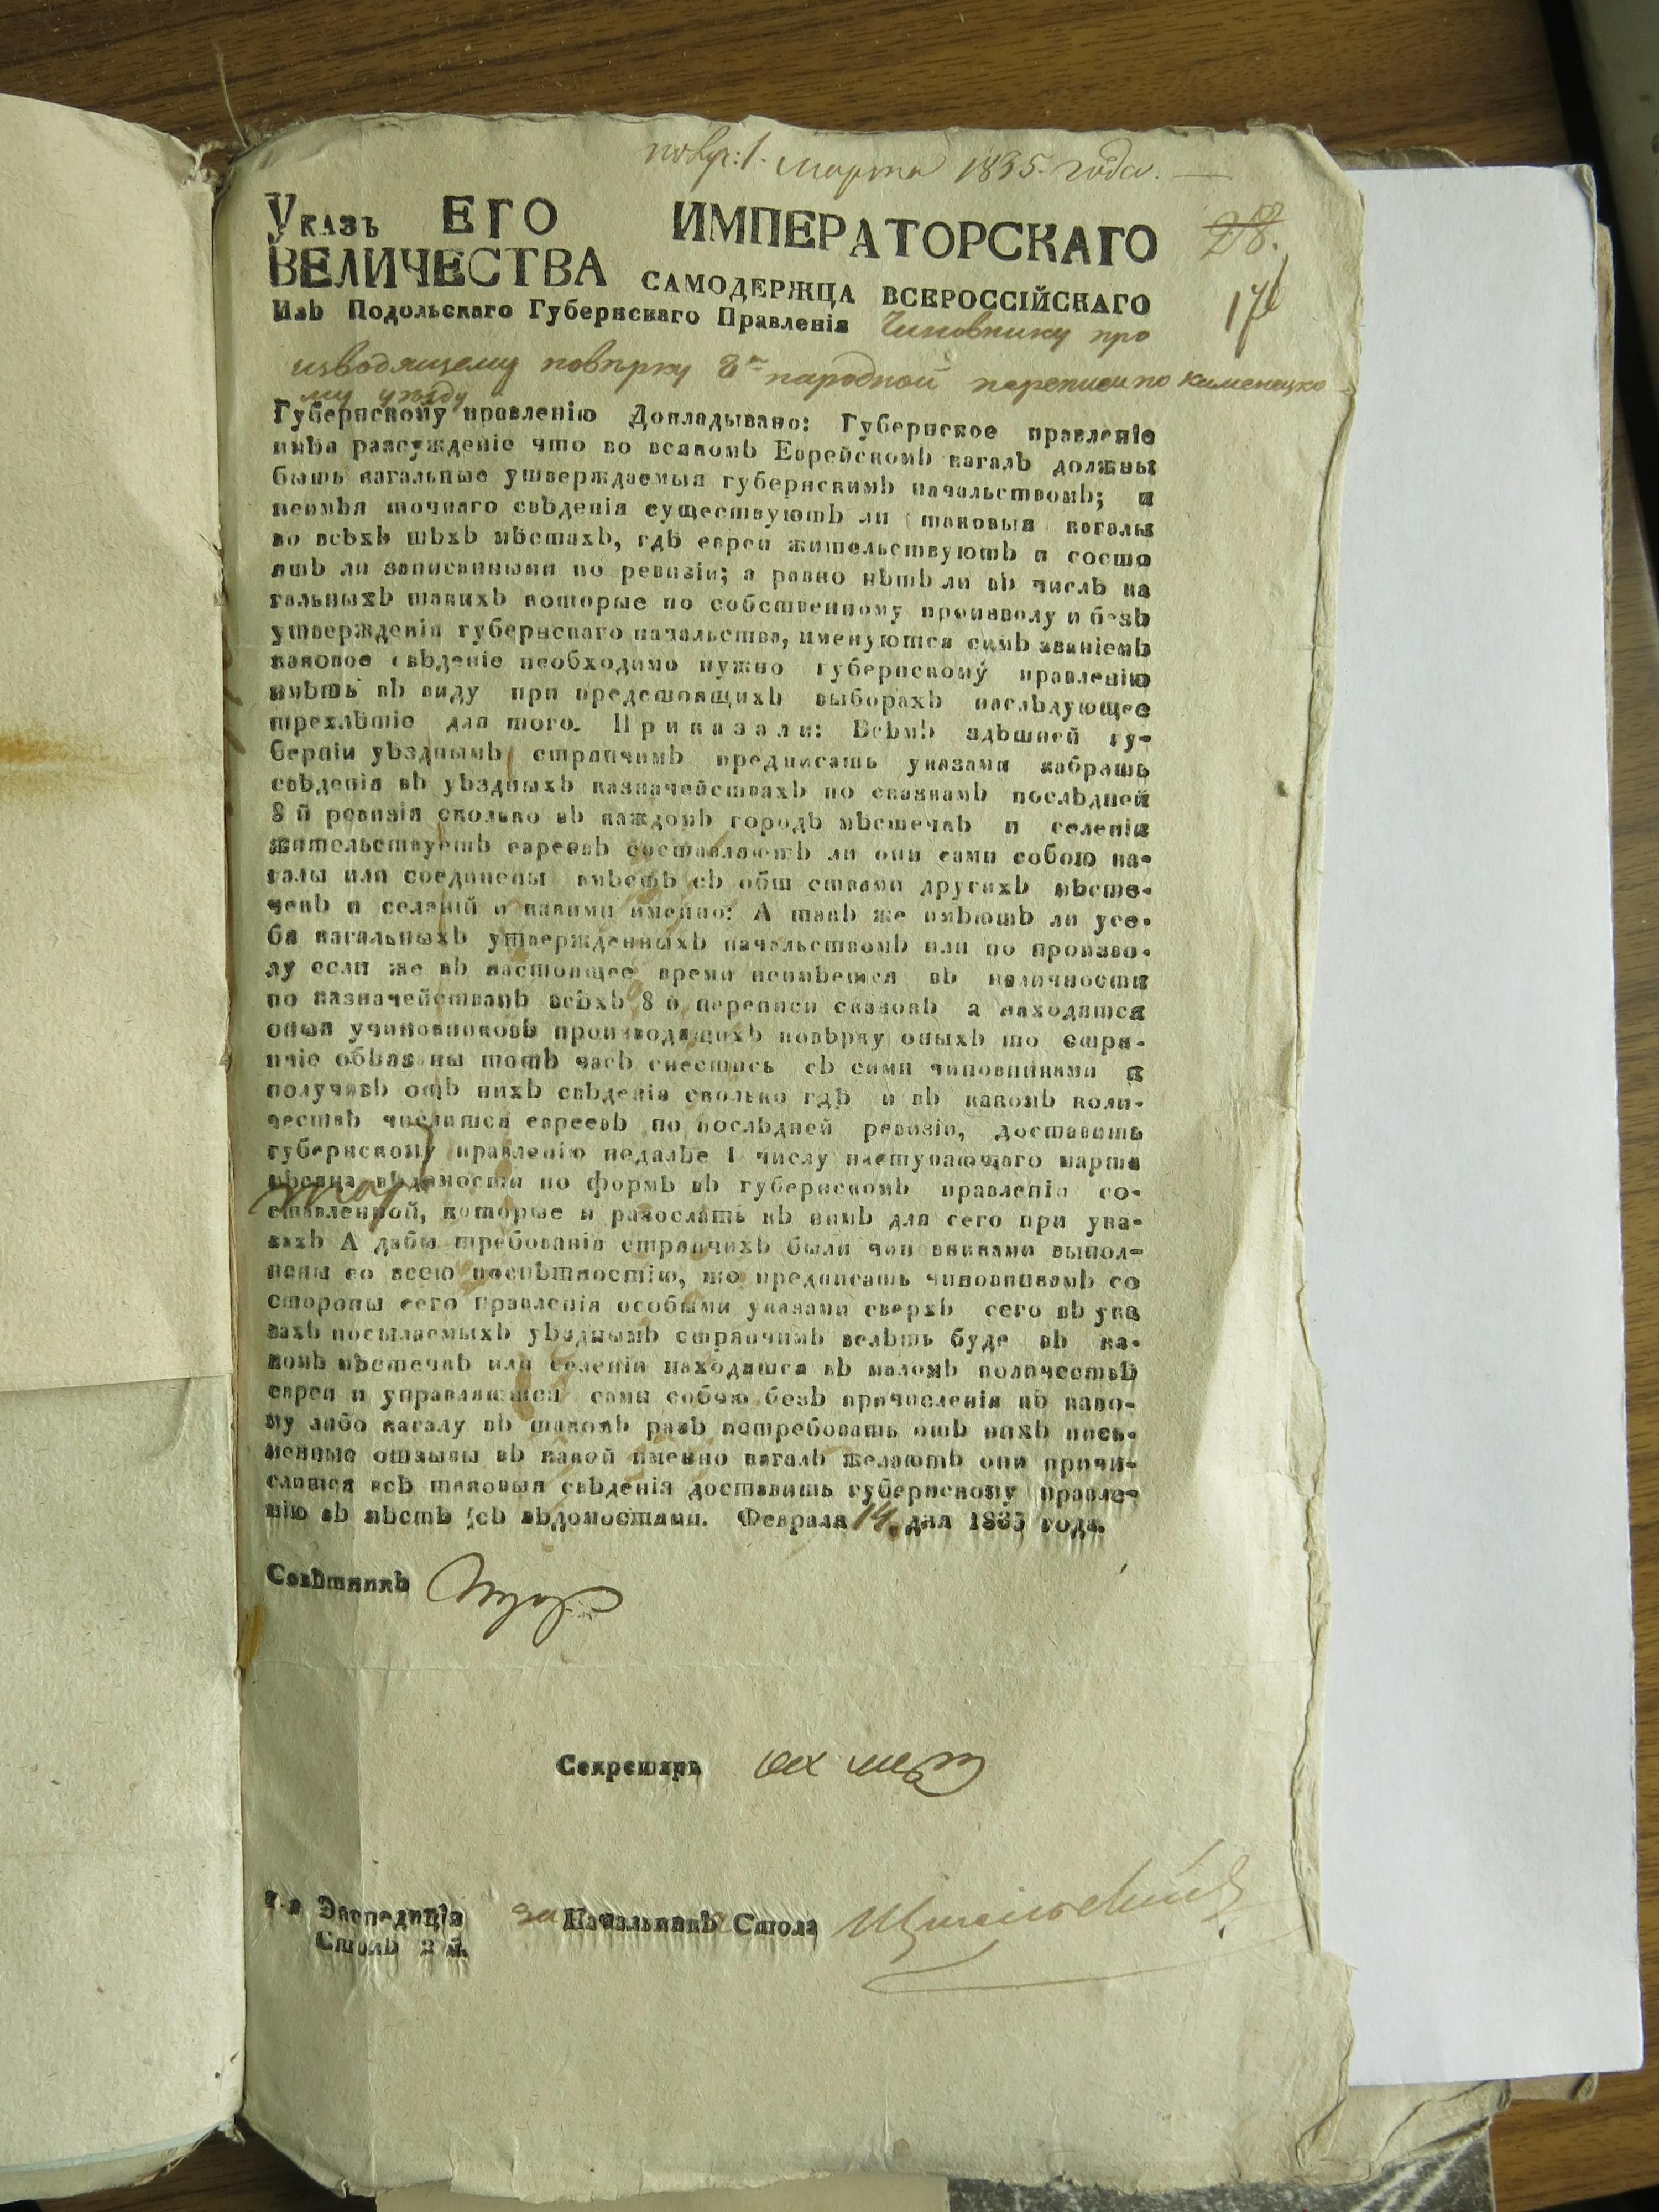 получ: 1. Марта 1835. года.
Указъ ЕГО ИМПЕРАТОРСКАГО
28.
ВЕЛИЧЕСТВА САМОДЕРЖЦА ВСЕРОССІЙСКАГО
Изъ Подольскаго Губернскаго Правленія Чиновнику про
изводящему повѣрку 8й народной переписи по Каменецко
му уѣзду
Губернскому правленію Докладывано: Губернское правленіе
имѣя разсужденіе что во всякомъ Еврейскомъ кагалѣ должны
быть кагальные утверждаемыя губернскимъ начальствомъ; и
неимѣя точнаго свѣденія существуютъ ли таковыя кагалы
во всѣхъ тѣхъ мѣстахъ, гдѣ евреи жительствуютъ и состо
ятъ ли записанными по ревизіи; а равно нѣтъ ли въ числѣ ка
гальныхъ такихъ которые по собственному произволу и безъ
утвержденія губернскаго начальства, именуются симъ званіемъ
каковое свѣденіе необходимо нужно губернскому правленію
имѣть въ виду при предстоящихъ выборахъ наслѣдующее
трехлѣтіе для того. Приказали: Всѣмъ здѣшней гу-
берніи уѣзднымъ стряпчимъ предписать указами забрать
свѣденія въ уѣздныхъ казначействахъ по сказкамъ послѣдней
8 й ревизіи сколько въ каждомъ городѣ мѣстечкѣ и селеніи
жительствуетъ евреевъ составляютъ ли они сами собою ка-
галы или соединены вмѣстѣ съ обществами другихъ мѣсте-
чекъ и селеній и какими именно: А такъ же имѣютъ ли усе-
бя кагальныхъ утвержденныхъ начальствомъ или по произво-
лу если же въ настоящее время неимѣется въ наличности
по казначействамъ всѣхъ 8 й переписи сказокъ а находятся
оныя учиновниковъ производящихъ повѣрку оныхъ то стря-
пчіе обязаны тотъ часъ снестись съ сими чиновниками и
получивъ отъ нихъ свѣденія сколько гдѣ и въ какомъ коли-
чествѣ числится евреевъ по послѣдней ревизіи, доставить
губернскому правленію недалѣе 1 числу наступающаго марта
мѣсяца вѣдомости по формѣ въ губернскомъ правленіи со-
ставленной, которые и разослать къ нимъ для сего при ука-
захъ А дабы требованія стряпчихъ были чиновниками выпол-
нены со всею поспѣшностію, то предписать чиновникамъ со
стороны сего правленія особыми указами сверхъ сего въ ука
захъ посылаемыхъ уѣзднымъ стряпчимъ велѣть буде въ ка-
комъ мѣстечкѣ или селеніи находятся въ маломъ количествѣ
евреи и управляются сами собою безъ причисленія къ како-
му либо кагалу въ такомъ разѣ потребовать отъ нихъ пись-
менные отзывы въ какой именно кагалъ желаютъ они причи-
слится всѣ таковыя свѣденія доставить губернскому правле-
нію въ мѣстѣ съ вѣдомостями. Февраля 14. дня 1835 года.
Совѣтникъ
Секретарь
Экспедиція за Начальникъ Стола
Столъ 2 й.